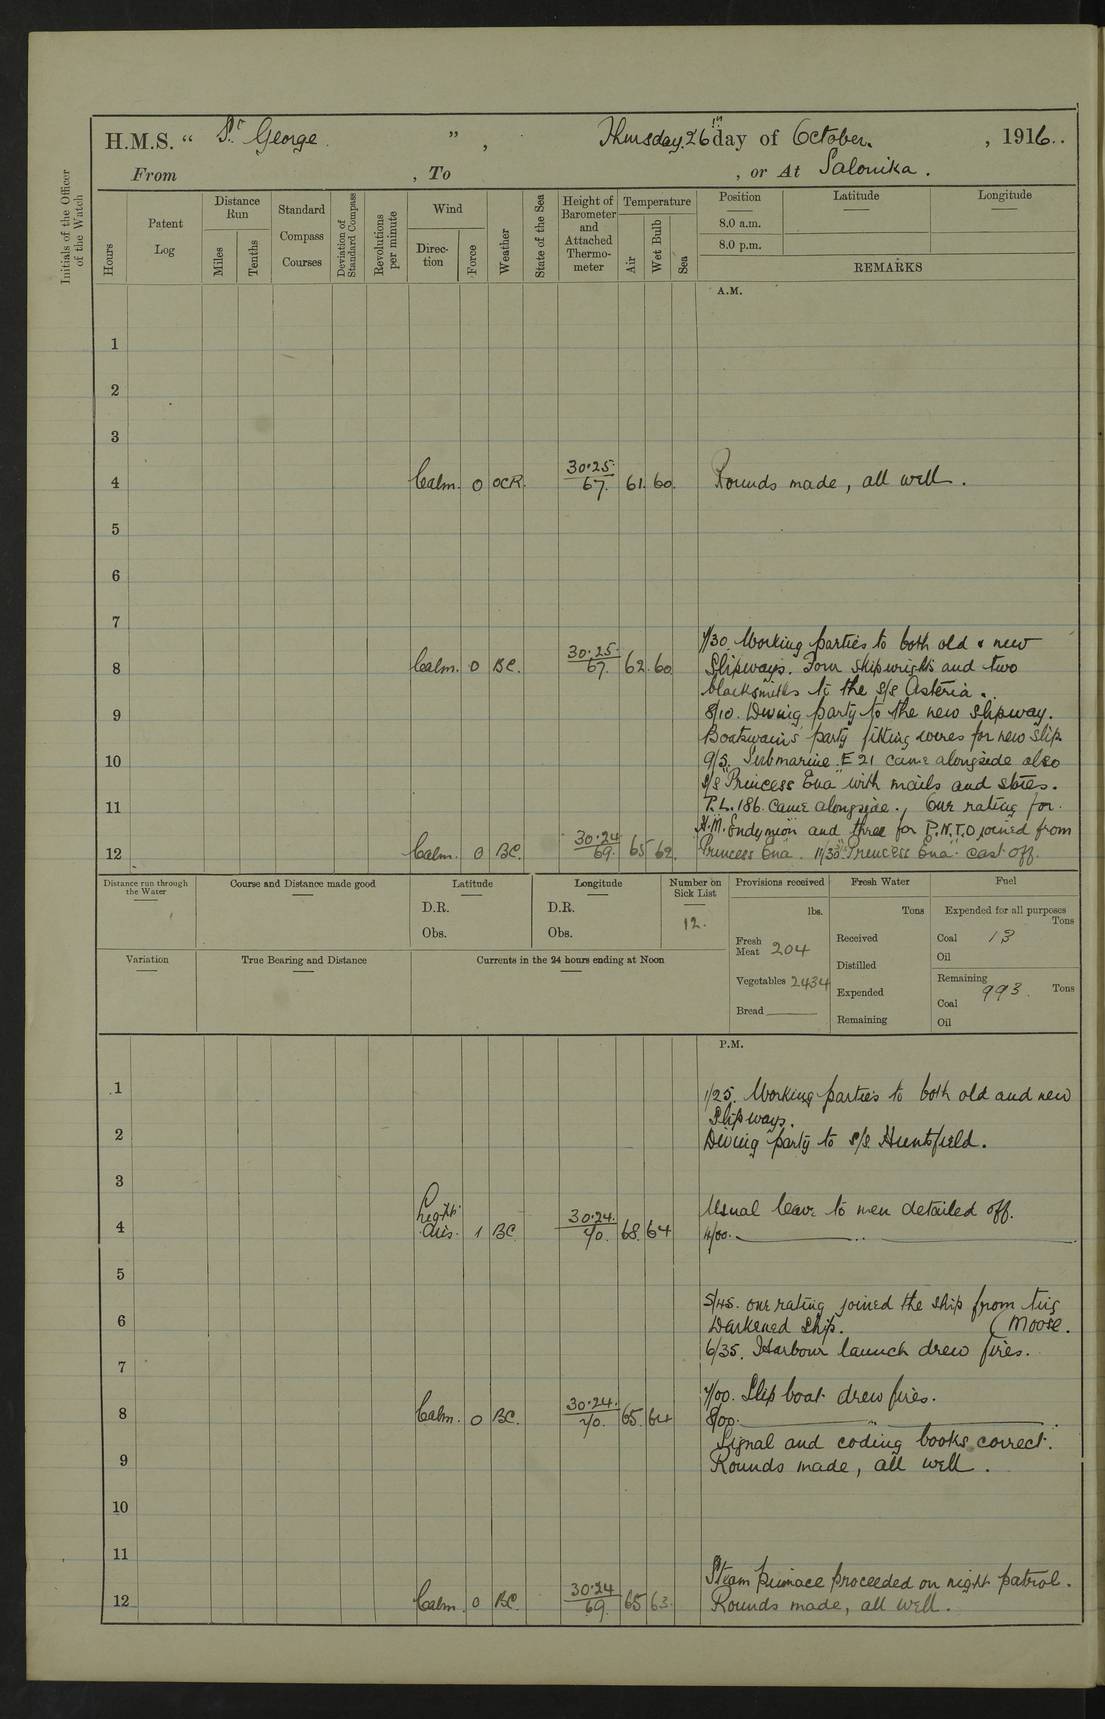 H.M.S. “ St George ” , Thursday 26th day of October. , 1916..
From , To , or At Salonika.
Initials of the Officer of the Watch
Hours
Patent Log
Distance Run
Miles
Tenths
Standard Compass Courses
Deviation of Standard Compass
Revolutions per minute
Wind
Direc-tion
Force
Weather
State of the Sea
Height of Barometer and Attached Thermo-meter
Temperature
Air
Wet Bulb
Sea
Position
Latitude
Longitude
8.0 a.m.
8.0 p.m.
REMARKS
A.M.
1
2
3
4 Calm. 0 OCR. 30.25 67. 61. 60. Rounds made, all well.
5
6
7
7/30. Working parties to both old & new
8 Calm. 0 BC. 30.25. 67. 62. 60. Slipways. Four shipwrights and two
blacksmiths to the s/s Asteria.
9 8/10. Diving party to the new slipway.
Boatswain's party fitting wires for new slip.
10 9/5. Submarine E 21 came alongside also
s/s "Princess Ena" with mails and stores.
11 P.L. 186. came alongside., One rating for
H.M. "Endymion" and three for P.N.T.O joined from
12 Calm. 0 BC. 30.24 69. 65 62. Princess Ena. 11/30. "Princess Ena" cast off.
Distance run through the Water
Course and Distance made good
Latitude
D.R.
Obs.
Longitude
D.R.
Obs.
Number on Sick List
12.
Provisions received
lbs.
Fresh Meat 204
Vegetables 2434
Bread
Fresh Water
Tons
Received
Distilled
Expended
Remaining
Fuel
Expended for all purposes
Tons
Coal 13
Oil
Remaining
Tons
Coal 993.
Oil
Variation
True Bearing and Distance
Currents in the 24 hours ending at Noon
P.M.
1 1/25. Working parties to both old and new
Slipways.
2 Diving party to s/s Huntsfield.
3
Usual leave to men detailed off.
4 Light Airs. 1 BC 30.24. 70. 68. 64 4/00.
5
5/45. One rating joined the ship from tug
6 Darkened ship. (Moose.
6/35. Harbour launch drew fires.
7
7/00. Slip boat drew fires.
8 Calm. 0 BC. 30.24. 70. 65. 64 8/00.
Signal and coding books correct.
9 Rounds made, all well.
10
11
Steam pinnace proceeded on night patrol.
12 Calm 0 BC. 30.24 69. 65 63. Rounds made, all well.